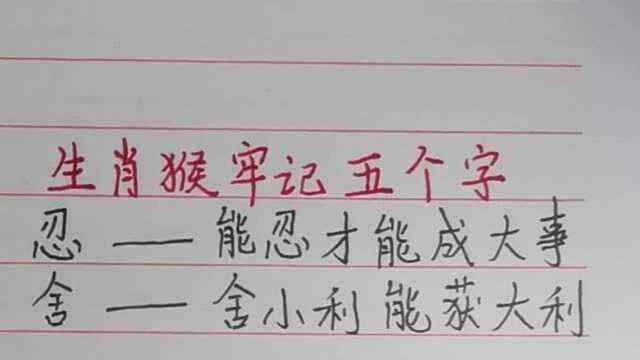 生肖猴牢记五个字
忍——能忍才能成大事
舍——舍小利能获大利